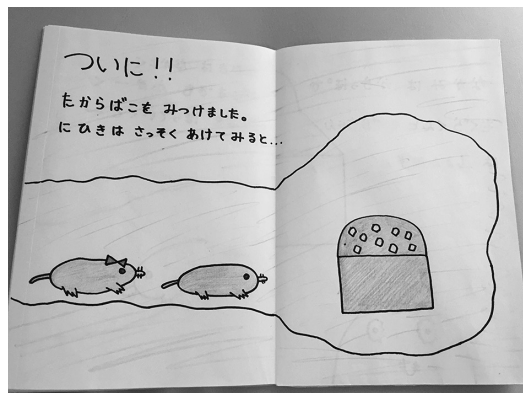 ついに!!
たからばこを みつけました。
にひきは さっそく あけてみると...